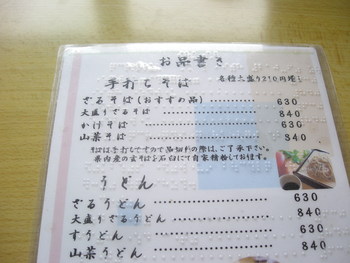 お品書き
手打ちそば 各種大盛り210円増し
ざるそば(おすすめ品) 630
大盛りざるそば 840
かけそば 630
山菜そば 840
そばは手打ちですので品切れの際は、ご了承下さい。
県内産の玄そばを石臼にて自家精粉しております。
うどん
ざるうどん 630
大盛りざるうどん 840
すうどん 630
山菜うどん 840